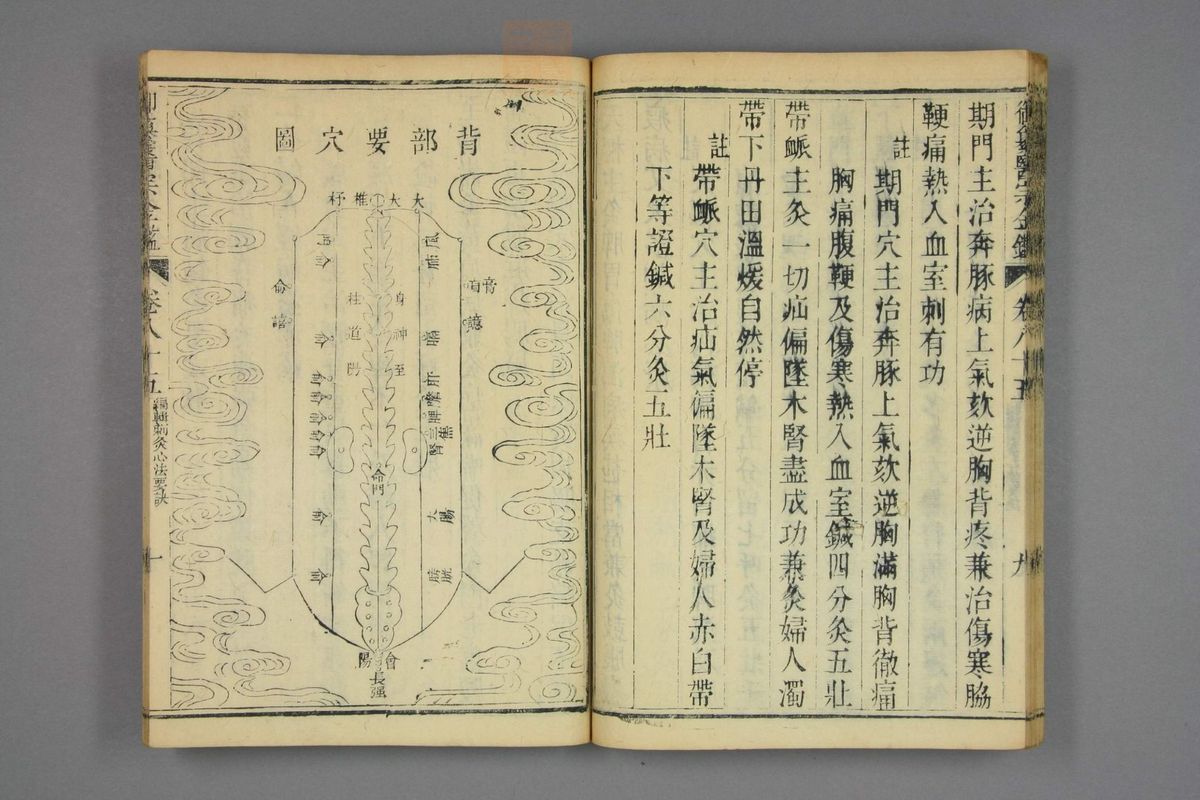 期門主治奔豚病上氣欬逆胸背疼兼治傷寒脇
鞕痛熱入血室刺有功
註
期門穴主治奔豚上氣欬逆胸滿胸背徹痛
胸痛腹鞕及傷寒熱入血室鍼四分灸五壯
帶脈主灸一切疝偏墜木腎盡成功兼灸婦人濁
帶下丹田溫煖自然停
註
帶脈穴主治疝氣偏墜木腎及婦人赤白帶
下等證鍼六分灸五壯
卷八十五
九
背部要穴圖
大杼
大椎
風門
身柱
神道
至陽
命門
會陽
長强
卷八十五
編輯刺灸心法要訣
十